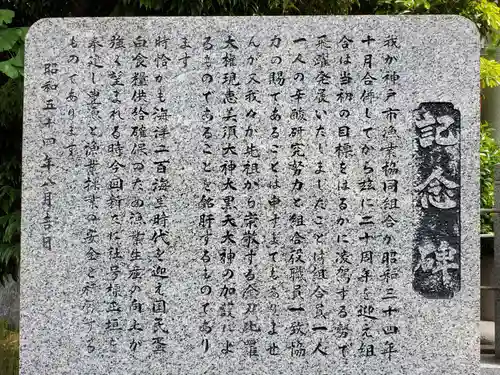 記念碑
我が神戸市漁業協同組合が昭和三十四年
十月合併してから茲に二十周年を迎え組
合は当初の目標をはるかに凌駕する勢で
飛躍発展いたしましたことは組合員一人
一人の辛酸研究努力と組合役職員一致協
力の賜であることは申すまでもありませ
んが又我々が先祖から崇敬する金刀比羅
大権現恵美須大神大黒天大神の加護によ
るものであることを銘肝するものであり
ます
時恰かも海洋二百海里時代を迎え国民蛋
白食糧供給確保のため漁業生産の向上が
強く望まれる時今回新たに社号標玉垣を
奉建し豊漁と漁業操業の安全を祈願する
ものであります
昭和五十四年八月吉日